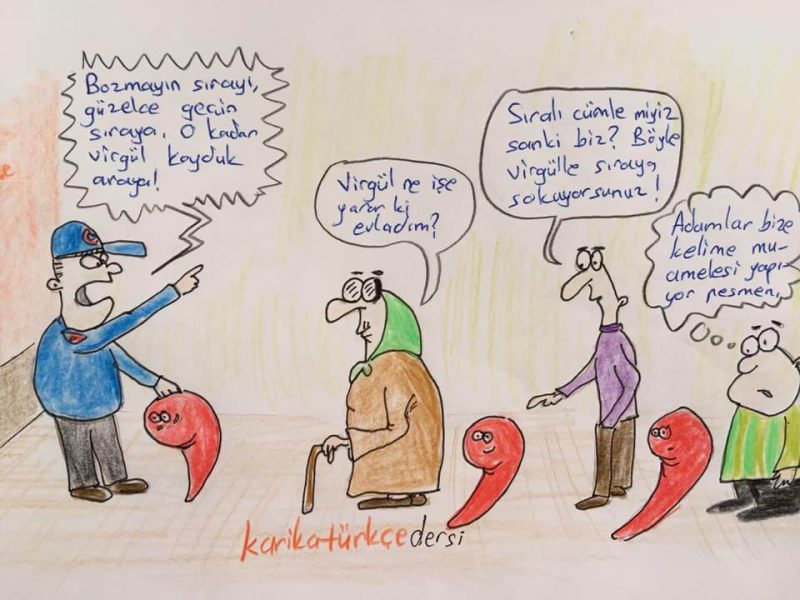 Bozmayın sırayı,
güzelce geçin
sıraya. O kadar
virgül koyduk
araya!
Virgül ne işe
yarar ki
evladım?
Sıralı cümle miyiz
sanki biz? Böyle
virgülle sıraya
sokuyorsunuz!
Adamlar bize
kelime mu-
amelesi yapı-
yor resmen.
karikatürkçedersi